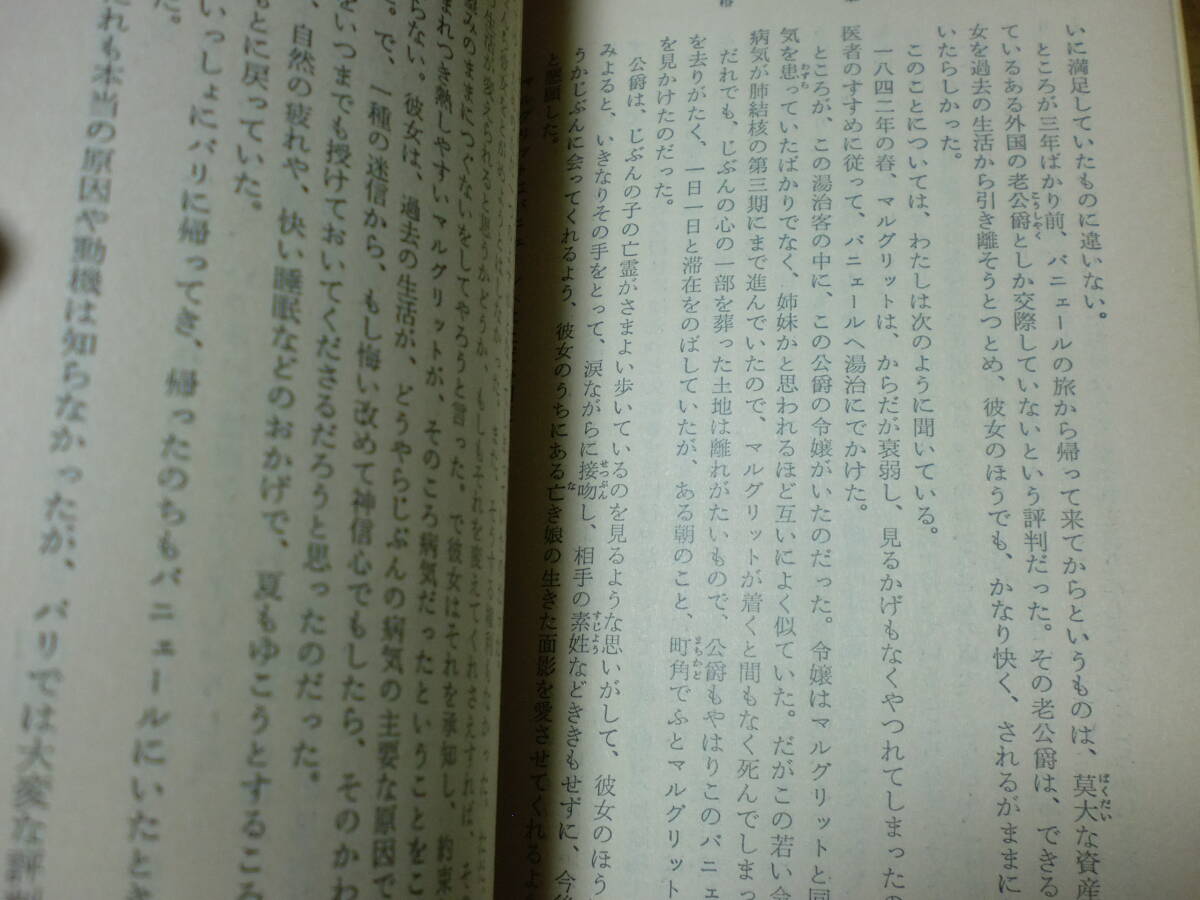 いに満足していたものに違いない。
ところが三年ばかり前、バニェールの旅から帰って来てからというものは、莫大な資産
ばくだい
ているある外国の老公爵としか交際していないという評判だった。その老公爵は、できる
こうしゃく
女を過去の生活から引き離そうとつとめ、彼女のほうでも、かなり快く、されるがままに
いたらしかった。
このことについては、わたしは次のように聞いている。
一八四二年の春、マルグリットは、からだが衰弱し、見るかげもなくやつれてしまったの
医者のすすめに従って、バニェールへ湯治にでかけた。
ところが、この湯治客の中に、この公爵の令嬢がいたのだった。令嬢はマルグリットと同
気を患っていたばかりでなく、姉妹かと思われるほど互いによく似ていた。だがこの若い令
わずら
病気が肺結核の第三期にまで進んでいたので、マルグリットが着くと間もなく死んでしまっ
だれでも、じぶんの心の一部を葬った土地は離れがたいもので、公爵もやはりこのバニェ
を去りがたく、一日一日と滞在をのばしていたが、ある朝のこと、町角でふとマルグリット
まちかど
を見かけたのだった。
公爵は、じぶんの子の亡霊がさまよい歩いているのを見るような思いがして、彼女のほう
みよると、いきなりその手をとって、涙ながらに接吻し、相手の素姓などききもせずに、今後
せっぷん
すじょう
うかじぶんに会ってくれるよう、彼女のうちにある亡き娘の生きた面影を愛させてくれるよ
な
と懇願した。
生活が変えられると思うかどうか、もしもそれを変えてくれさえすれば、そ
みのままにつぐないをしてやろうと言った。で彼女はそれを承知し、約束
まれつき熱しやすいマルグリットが、そのころ病気だったということをこ
らない。彼女は、過去の生活が、どうやらじぶんの病気の主要な原因で
。で、一種の迷信から、もし悔い改めて神信心でもしたら、そのかわ
をいつまでも授けておいてくださるだろうと思ったのだった。
、自然の疲れや、快い睡眠などのおかげで、夏もゆこうとするころ
もとに戻っていた。
いっしょにパリに帰ってき、帰ったのちもバニェールにいたとき
た。
だれも本当の原因や動機は知らなかったが、パリでは大変な評判